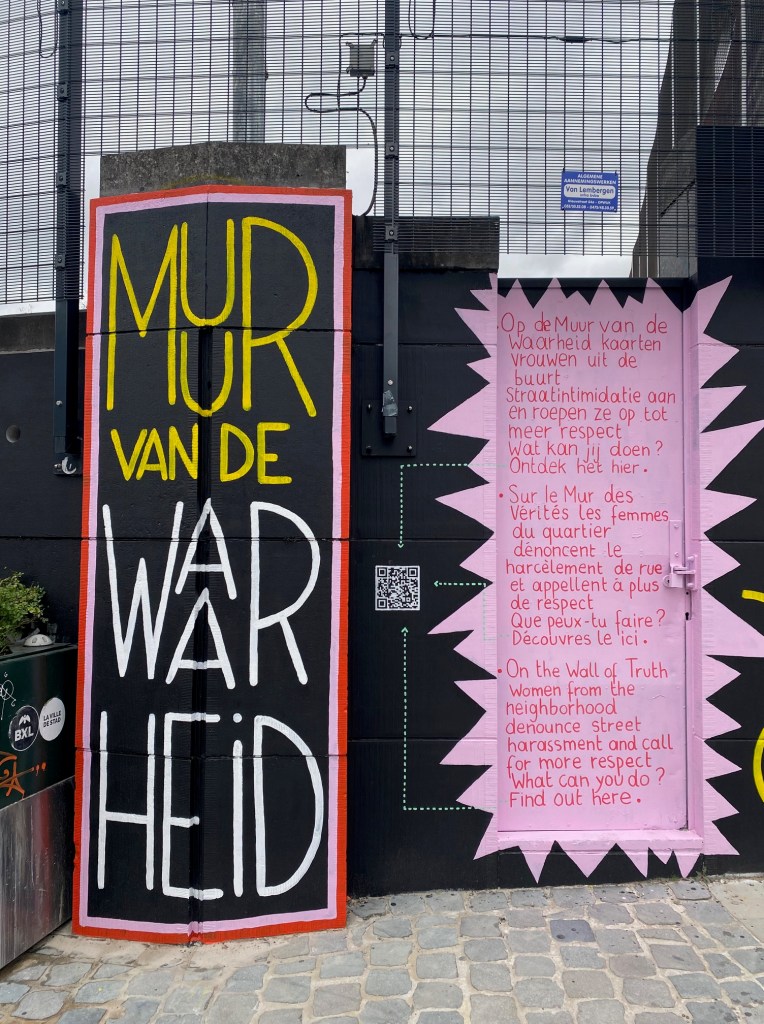 ALGEMENE
AANNEMINGSWERKEN
Van Lembergen
MUUR
VAN DE
WAAR
HEiD
Op de Muur van de
Waarheid kaarten
vrouwen uit de
buurt
Straatintimidatie aan
en roepen ze op tot
meer respect
Wat kan jij doen ?
Ontdek het hier.
• Sur le Mur des
Vérités les femmes
du quartier
dénoncent le
harcèlement de rue
et appellent à plus
de respect
Que peux-tu faire ?
Découvres le ici.
• On the Wall of Truth
Women from the
neighborhood
denounce street
harassment and call
for more respect
What can you do ?
Find out here.
BXL
LA VILLE
DE STAD